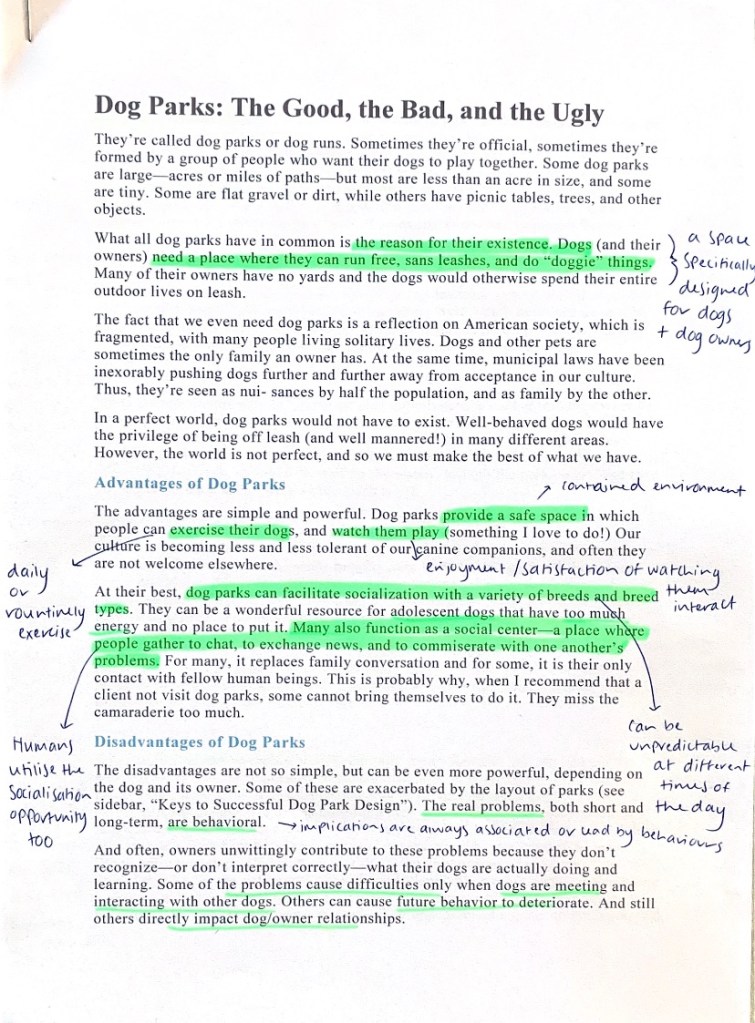 Dog Parks: The Good, the Bad, and the Ugly
They're called dog parks or dog runs. Sometimes they're official, sometimes they're
formed by a group of people who want their dogs to play together. Some dog parks
are large—acres or miles of paths—but most are less than an acre in size, and some
are tiny. Some are flat gravel or dirt, while others have picnic tables, trees, and other
objects.
What all dog parks have in common is the reason for their existence. Dogs (and their
owners) need a place where they can run free, sans leashes, and do “doggie” things.
Many of their owners have no yards and the dogs would otherwise spend their entire
outdoor lives on leash.
a space
specifically
designed
for dogs
+ dog owners
The fact that we even need dog parks is a reflection on American society, which is
fragmented, with many people living solitary lives. Dogs and other pets are
sometimes the only family an owner has. At the same time, municipal laws have been
inexorably pushing dogs further and further away from acceptance in our culture.
Thus, they're seen as nui- sances by half the population, and as family by the other.
In a perfect world, dog parks would not have to exist. Well-behaved dogs would have
the privilege of being off leash (and well mannered!) in many different areas.
However, the world is not perfect, and so we must make the best of what we have.
Advantages of Dog Parks
contained environment
The advantages are simple and powerful. Dog parks provide a safe space in which
people can exercise their dogs, and watch them play (something I love to do!) Our
culture is becoming less and less tolerant of our canine companions, and often they
are not welcome elsewhere.
enjoyment / satisfaction of watching
them
interact
daily
or
rountinely
exercise
At their best, dog parks can facilitate socialization with a variety of breeds and breed
types. They can be a wonderful resource for adolescent dogs that have too much
energy and no place to put it. Many also function as a social center—a place where
people gather to chat, to exchange news, and to commiserate with one another's
problems. For many, it replaces family conversation and for some, it is their only
contact with fellow human beings. This is probably why, when I recommend that a
client not visit dog parks, some cannot bring themselves to do it. They miss the
camaraderie too much.
can be
unpredictable
at different
times of
the day
Humans
utilise the
socialisation
opportunity
too
Disadvantages of Dog Parks
The disadvantages are not so simple, but can be even more powerful, depending on
the dog and its owner. Some of these are exacerbated by the layout of parks (see
sidebar, “Keys to Successful Dog Park Design”). The real problems, both short and
long-term, are behavioral.
implications are always associated or lead by behaviours
And often, owners unwittingly contribute to these problems because they don't
recognize—or don't interpret correctly—what their dogs are actually doing and
learning. Some of the problems cause difficulties only when dogs are meeting and
interacting with other dogs. Others can cause future behavior to deteriorate. And still
others directly impact dog/owner relationships.